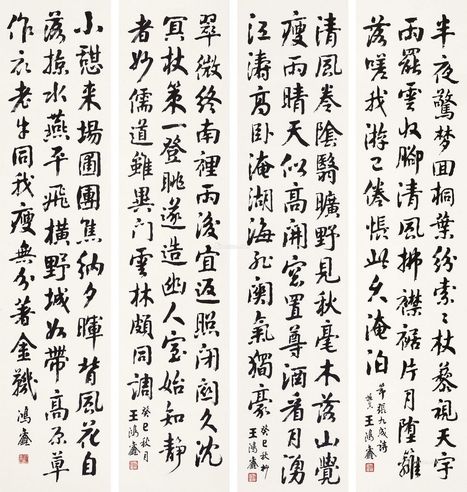 半夜驚夢回桐葉紛索々杖藜視天宇
雨罷雲收腳清風拂襟裾片月墮籬
落嗟我游已倦悵此久淹泊
節張九成詩
王鴻鑫
清風卷陰翳曠野見秋毫木落山覺
瘦雨晴天似高開窗置尊酒看月湧
江濤高卧淹湖海氣獨豪
癸巳秋抄
王鴻鑫
翠微終南裡雨後宜返照閉關久沈
冥杖策一登眺遂造幽人室始知靜
者妙儒道雖異門雲林頗同調
癸巳秋月
王鴻鑫
小憩來場圃團焦納夕暉背風花自
落掠水燕平飛橫野城如帶高原草
作衣老牛同我瘦無分著金鞿
鴻鑫